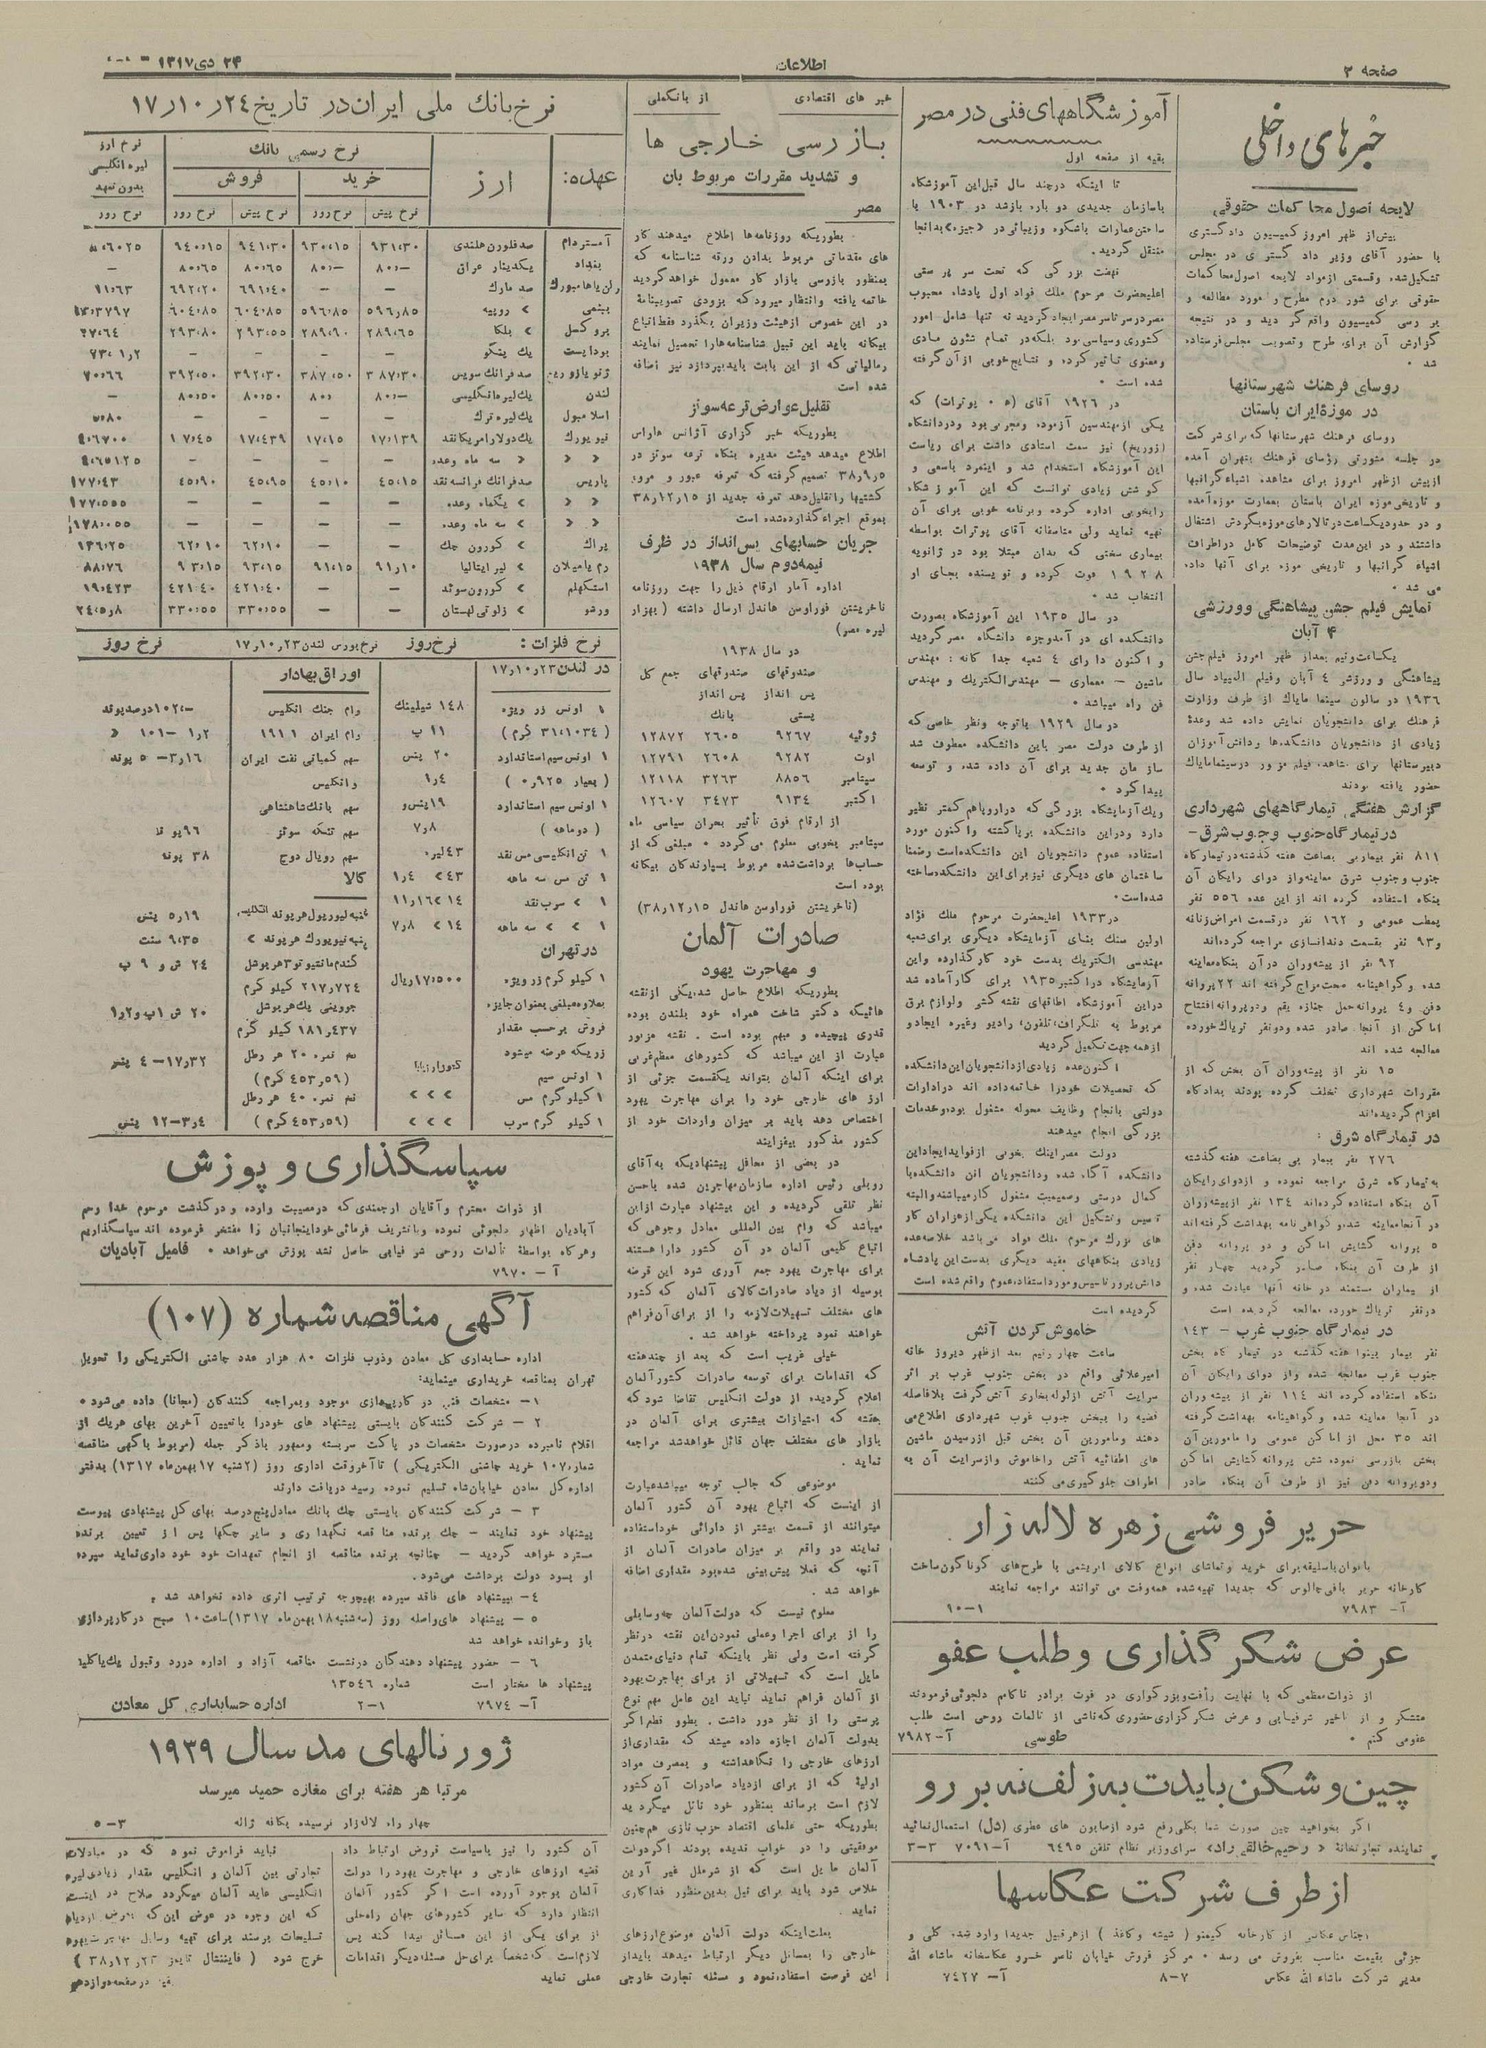 صفحه ۲
اطلاعات
۲۴ دی ۱۳۱۷
خبرهای داخلی
لایحه اصول محاکمات حقوقی
پیش از ظهر امروز کمیسیون دادگستری
با حضور آقای وزیر دادگستری در مجلس
تشکیل شده و قسمتی از مواد لایحه اصول محاکمات
حقوقی برای شور دوم مطرح و مورد مطالعه و
بررسی کمیسیون واقع گردید و در نتیجه
گزارش آن برای طرح و تصویب مجلس فرستاده
شد
روسای فرهنگ شهرستانها
در موزه ایران باستان
روسای فرهنگ شهرستانها که برای شرکت
در جلسه مشورتی رؤسای فرهنگ بتهران آمده
از پیش از ظهر امروز برای مشاهده اشیاء گرانبها
و تاریخی موزه ایران باستان بعمارت موزه آمده
و در حدود یکساعت در تالارهای موزه بگردش اشتغال
داشتند و در این مدت توضیحات کامل در اطراف
اشیاء گرانبها و تاریخی موزه برای آنها داده
می شد.
نمایش فیلم جشن پیشاهنگی و ورزشی
۴ آبان
یکساعت و نیم بعد از ظهر امروز فیلم جشن
پیشاهنگی و ورزشی ۴ آبان و فیلم المپیاد سال
۱۹۳۶ در سالون سینما مایاک از طرف وزارت
فرهنگ برای دانشجویان نمایش داده شد و عدهٔ
زیادی از دانشجویان دانشکده‌ها و دانش آموزان
دبیرستانها برای مشاهده فیلم مزبور در سینما مایاک
حضور یافته بودند
گزارش هفتگی تیمارگاههای شهرداری
در تیمارگاه جنوب و جنوب شرق -
۸۱۱ نفر بیمار بی بضاعت هفته گذشته در تیمارگاه
جنوب و جنوب شرق معاینه و از دوای رایگان آن
بنگاه استفاده کرده اند از این عده ۵۵۶ نفر
بمطب عمومی و ۱۶۲ نفر در قسمت امراض زنانه
و ۹۳ نفر بقسمت دندانسازی مراجعه کرده‌اند
۹۲ نفر از پیشه‌وران در آن بنگاه معاینه
شده و گواهینامه صحت مزاج گرفته اند ۲۲ پروانه
دفن و ۴ پروانه حمل جنازه بقم و دو پروانه افتتاح
اماکن از آنجا صادر شده و دو نفر تریاک خورده
معالجه شده اند
۱۵ نفر از پیشه‌وران آن بخش که از
مقررات شهرداری تخلف کرده بودند بدادگاه
اعزام گردیده‌اند
در تیمارگاه شرق :
۲۷۶ نفر بیمار بی بضاعت هفته گذشته
به تیمارگاه شرق مراجعه نموده و از دوای رایگان
آن بنگاه استفاده کرده‌اند ۱۳۴ نفر از پیشه‌وران
در آنجا معاینه شده و گواهی نامه بهداشت گرفته‌اند
۵ پروانه گشایش اماکن و دو پروانه دفن
از طرف آن بنگاه صادر گردید چهار نفر
از بیماران مستمند در خانه آنها عیادت شده و
دو نفر تریاک خورده معالجه گردیده است
در تیمارگاه جنوب غرب - ۱۴۳
نفر بیمار بینوا هفته گذشته در تیمارگاه بخش
جنوب غرب معالجه شده و از دوای رایگان آن
بنگاه استفاده کرده اند ۱۱۴ نفر از پیشه‌وران
در آنجا معاینه شده و گواهینامه بهداشت گرفته
اند ۳۵ محل از اماکن عمومی را مامورین آن
بخش بازرسی نموده شش پروانه گشایش اماکن
و دو پروانه دفن نیز از طرف آن بنگاه صادر
آموزشگاههای فنی در مصر
بقیه از صفحه اول
تا اینکه در چند سال قبل این آموزشگاه
با سازمان جدیدی دو باره باز شد در ۱۹۰۳ با
ساختن عمارات باشکوه و زیبائی در «جیزه» بدانجا
منتقل گردید.
نهضت بزرگی که تحت سرپرستی
اعلیحضرت مرحوم ملک فواد اول پادشاه محبوب
مصر در سرتاسر مصر ایجاد گردید نه تنها شامل امور
کشوری و سیاسی بود بلکه در تمام شئون مادی
و معنوی تاثیر کرده و نتایج خوبی از آن گرفته
شده است.
در ۱۹۲۶ آقای (ه. یوترات) که
یکی از مهندسین آزموده و مجرب بود و در دانشگاه
(زوریخ) نیز سمت استادی داشت برای ریاست
این آموزشگاه استخدام شد و اینمرد باسعی و
کوشش زیادی توانست که این آموزشگاه
را بخوبی اداره کرده و برنامه خوبی برای آن
تهیه نماید ولی متاسفانه آقای یوترات بواسطه
بیماری سختی که بدان مبتلا بود در ژانویه
۱۹۲۸ فوت کرده و نویسنده بجای او
انتخاب شد.
در سال ۱۹۳۵ این آموزشگاه بصورت
دانشکده ای در آمد و جزء دانشگاه مصر گردید
و اکنون دارای ۴ شعبه جدا گانه : مهندس
ماشین - معماری - مهندس الکتریک و مهندس
فن راه میباشد.
در سال ۱۹۲۹ با توجه و نظر خاصی که
از طرف دولت مصر باین دانشکده معطوف شد
سازمان جدید برای آن داده شد و توسعه
پیدا کرد.
و یک آزمایشگاه بزرگی که در اروپا هم کمتر نظیر
دارد و در این دانشکده برپا گشته و اکنون مورد
استفاده عموم دانشجویان این دانشکده است و ضمنا
ساختمان های دیگری نیز برای این دانشکده ساخته
شده است.
در ۱۹۳۳ اعلیحضرت مرحوم ملک فؤاد
اولین سنک بنای آزمایشگاه دیگری برای شعبه
مهندسی الکتریک بدست خود کار گذارده و این
آزمایشگاه در اکتبر ۱۹۳۵ برای کار آماده شد
در این آموزشگاه اطاقهای نقشه کشی و لوازم برق
مربوط به تلگراف، تلفون، رادیو و غیره ایجاد و
از همه جهت تکمیل گردید
اکنون عده زیادی از دانشجویان این دانشکده
که تحصیلات خود را خاتمه داده اند در ادارات
دولتی بانجام وظایف محوله مشغول بوده و خدمات
بزرگی انجام میدهند
دولت مصر اینک بخوبی از فواید ایجاد این
دانشکده آگاه شده و دانشجویان این دانشکده با
کمال درستی و صمیمیت مشغول کار میباشند و البته
تاسیس و تشکیل این دانشکده یکی از هزاران کار
های بزرک مرحوم ملک فواد می‌باشد خلاصه عده
زیادی بنگاههای مفید دیگری بدست این پادشاه
دانش پرور تاسیس و مورد استفاده عموم واقع شده است
گردیده است
خاموش کردن آتش
ساعت چهار و نیم بعد از ظهر دیروز خانه
امیر علائی واقع در بخش جنوب غرب بر اثر
سرایت آتش از لوله بخاری آتش گرفت بلافاصله
قضیه را ببخش جنوب غرب شهرداری اطلاع می
دهند و مامورین آن بخش قبل از رسیدن ماشین
های اطفائیه آتش را خاموش و از سرایت آن به
اطراف جلوگیری می‌کنند
حریر فروشی زهره لاله زار
بانوان باسلیقه برای خرید و تماشای انواع کالای ابریشمی با طرح‌های گوناگون ساخت
کارخانه حریر بافی چالوس که جدیدا تهیه شده همه وقت می توانند مراجعه نمایند
آ- ۷۹۸۳ ۱-۱۰
عرض شکر گذاری و طلب عفو
از ذوات معظمی که با نهایت رأفت و بزرگواری در فوت برادر ناکامم دلجوئی فرمودند
متشکر و از تاخیر شرفیابی و عرض شکرگزاری حضوری که ناشی از تالمات روحی است طلب
عفو می کنم. طوسی آ- ۷۹۸۲
چین و شکن بایدت به زلف نه بر رو
اگر بخواهید چین صورت شما بکلی رفع شود از صابون های عطری (دل) استعمال نمائید
نماینده تجارتخانهٔ «رحیم خالقی راد» سرای وزیر نظام تلفن ۶۴۹۵ آ- ۷۰۹۱ ۳-۳
از طرف شرکت عکاسها
اجناس عکاسی از کارخانه گیمنو ( شیشه و کاغذ ) از هر قبیل جدیدا وارد شده کلی و
جزئی بقیمت مناسب بفروش می رسد. مرکز فروش خیابان ناصر خسرو عکاسخانه ماشاء الله
مدیر شرکت ماشاء الله عکاس ۷-۸ آ- ۷۴۲۷
خبرهای اقتصادی
از بانک ملی
بازرسی خارجی ها
و تشدید مقررات مربوط بان
مصر
بطوریکه روزنامه‌ها اطلاع میدهند کار
های مقدماتی مربوط بدادن ورقه شناسنامه که
بمنظور بازرسی بازار کار معمول خواهد گردید
خاتمه یافته و انتظار میرود که بزودی تصویبنامهٔ
در این خصوص از هیئت وزیران بگذرد فقط اتباع
بیگانه باید این قبیل شناسنامه‌ها را تحصیل نمایند
و مالیاتی که از این بابت باید بپردازد نیز اضافه
شده است
تقلیل عوارض ترعه سوئز
بطوریکه خبر گزاری آژانس هاواس
اطلاع میدهد هیئت مدیره بنگاه ترعه سوئز در
۳۸٫۹٫۵ تصمیم گرفته که تعرفه عبور و مرور
کشتیها را تقلیل دهد تعرفه جدید از ۳۸٫۱۲٫۱۵
بموقع اجراء گذارده شده است
جریان حسابهای پس‌انداز در ظرف
نیمه دوم سال ۱۹۳۸
اداره آمار ارقام ذیل را جهت روزنامه
ناخریشتن فوراوسن هاندل ارسال داشته (بهزار
لیره مصر)
در سال ۱۹۳۸
صندوقهای صندوقهای جمع کل
پس انداز پس انداز
پستی بانک
ژوئیه ۹۲۶۷ ۲۶۰۵ ۱۲۸۷۲
اوت ۹۲۸۲ ۲۶۰۸ ۱۲۷۹۱
سپتامبر ۸۸۵۶ ۳۲۶۳ ۱۲۱۱۸
اکتبر ۹۱۳۴ ۳۴۷۳ ۱۲۶۰۷
از ارقام فوق تأثیر بحران سیاسی ماه
سپتامبر بخوبی معلوم می‌گردد. مبلغی که از
حساب‌ها برداشت شده مربوط بسپارندگان بیگانه
بوده است
(ناخریشتن فوراوسن هاندل ۳۸٫۱۲٫۱۵)
صادرات آلمان
و مهاجرت یهود
بطوریکه اطلاع حاصل شده یکی از نقشه
هائیکه دکتر شاخت همراه خود بلندن بوده
قدری پیچیده و مبهم بوده است. نقشه مزبور
عبارت از این میباشد که کشورهای معظم غربی
برای اینکه آلمان بتواند یکقسمت جزئی از
ارز های خارجی خود را برای مهاجرت یهود
اختصاص دهد باید بر میزان واردات خود از
کشور مذکور بیفزایند
در بعضی از محافل پیشنهادیکه به آقای
روبلی رئیس اداره سازمان مهاجرین شده باحسن
نظر تلقی گردیده و این پیشنهاد عبارت از این
میباشد که وام بین المللی معادل وجوهی که
اتباع کلیمی آلمان در آن کشور دارا هستند
برای مهاجرت یهود جمع آوری شود این قرضه
بوسیله ازدیاد صادرات کالای آلمان که کشور
های مختلف تسهیلات لازمه را از برای آن فراهم
خواهند نمود پرداخته خواهد شد.
خیلی غریب است که بعد از چند هفته
که اقدامات برای توسعه صادرات کشور آلمان
اعلام گردیده از دولت انگلیس تقاضا شود که
بنقشه که امتیازات بیشتری برای آلمان در
بازار های مختلف جهان قائل خواهد شد مراجعه
نماید.
موضوعی که جالب توجه میباشد عبارت
از اینست که اتباع یهود آن کشور آلمان
میتوانند از قسمت بیشتر از دارائی خود استفاده
نمایند در واقع بر میزان صادرات آلمان از
آنچه که فعلا پیش‌بینی شده بود مقداری اضافه
خواهد شد.
معلوم نیست که دولت آلمان چه وسایلی
را از برای اجرا و عملی نمودن این نقشه در نظر
گرفته است ولی نظر باینکه تمام دنیای متمدن
مایل است که تسهیلاتی از برای مهاجرت یهود
از آلمان فراهم نماید نباید این عامل مهم نوع
پرستی را از نظر دور داشت. بطور قطع اگر
بدولت آلمان اجازه داده میشد که مقداری از
ارزهای خارجی را نگاهداشته و بمصرف مواد
اولیهٔ که از برای ازدیاد صادرات آن کشور
لازم است برساند بمنظور خود نائل میگردید
بطوریکه حتی علمای اقتصاد حزب نازی هم چنین
موفقیتی را در خواب ندیده بودند اگر دولت
آلمان مایل است که از شر ملل غیر آرین
خلاص شود باید برای نیل بدین منظور فداکاری
نماید.
بعلت اینکه دولت آلمان موضوع ارزهای
خارجی را بمسائل دیگر ارتباط میدهد باید از
این فرصت استفاده نمود و مسئله تجارت خارجی
آن کشور را نیز باسیاست قروض ارتباط داد
قضیه ارزهای خارجی و مهاجرت یهود را دولت
آلمان بوجود آورده است اگر کشور آلمان
انتظار دارد که سایر کشورهای جهان راه حلی
از برای یکی از این مسائل پیدا کند پس
لازم است که شخصاً برای حل مسئله دیگر اقدامات
عملی نماید
نباید فراموش نمود که در مبادلات
تجارتی بین آلمان و انگلیس مقدار زیادی لیره
انگلیسی عاید آلمان میگردد صلاح در اینست
که این وجوه در عوض این که بمصرف ازدیاد
تسلیحات برسند برای تهیه وسایل مهاجرت یهود
خرج شود ( فایننشال تایمز ۳۸٫۱۲٫۲۳ )
بقیه در صفحه دوازدهم
نرخ بانک ملی ایران در تاریخ ۱۷٫۱۰٫۲۴
عهده: ارز نرخ رسمی بانک نرخ ارز لیره انگلیسی بدون تعهد
خرید فروش
نرخ پیش نرخ روز نرخ پیش نرخ روز نرخ روز
آمستردام صد فلورن هلندی ۹۳۱،۳۰ ۹۳۰،۱۵ ۹۴۱،۳۰ ۹۴۰،۱۵
بغداد یکدینار عراق ۸۰،- ۸۰،- ۸۰،۶۵ ۸۰،۶۵ -
برلن یا هامبورک صد مارک - - ۶۹۱،۴۰ ۶۹۲،۲۰ ۱۱،۶۳
بمبئی » روپیه ۵۹۶،۸۵ ۵۹۶،۸۵ ۶۰۴،۸۵ ۶۰۴،۸۵
بروکسل » بلکا ۲۸۹،۶۵ ۲۸۹،۹۰ ۲۹۳،۵۵ ۲۹۳،۸۰ ۲۷،۶۴
بوداپست یک پنگو - - - -
ژنو یا زوریخ صد فرانک سویس ۳۸۷،۳۰ ۳۸۷،۵۰ ۳۹۲،۳۰ ۳۹۲،۵۰
لندن یک لیره انگلیسی ۸۰،- ۸۰،- ۸۰،۵۰ ۸۰،۵۰ -
اسلامبول یک لیره ترک - - - -
نیویورک یک دولار امریکا نقد ۱۷،۱۳۹ ۱۷،۱۵ ۱۷،۴۳۹ ۱۷،۴۵
» » » سه ماه وعده - - - -
پاریس صد فرانک فرانسه نقد ۴۵،۱۵ ۴۵،۱۰ ۴۵،۹۵ ۴۵،۹۰ ۱۷۷،۴۳
» » » یکماه وعده - - - -
» » » سه ماه وعده - - - -
پراک » کورون چک - - ۶۲،۱۰ ۶۲،۱۰ ۱۳۶،۲۵
رم یا میلان » لیر ایتالیا ۹۱،۱۰ ۹۱،۱۵ ۹۳،۱۵ ۹۳،۱۵ ۸۸،۷۶
استکهلم » کورون سوئد - - ۴۲۱،۴۰ ۴۲۱،۴۰ ۱۹،۴۲۳
ورشو » زلوتی لهستان - - ۳۳۰،۵۵ ۳۳۰،۵۵
نرخ فلزات : نرخ روز
در لندن ۱۷٫۱۰٫۲۳
۱ اونس زر ویژه ۱۴۸ شیلینک
( ۳۱،۱۰۳۴ گرم ) ۱۱ پ
۱ اونس سیم استاندارد ۲۰ پنس
( بعیار ۰٫۹۲۵ ) ۱٫۴
۱ اونس سیم استاندارد ۱۹ پنس و
( دو ماهه ) ۷٫۸
۱ تن انگلیسی مس نقد ۴۳ لیره
۱ تن مس سه ماهه ۴۳ » ۱٫۴
۱ » سرب نقد ۱۴ » ۱۱٫۱۶
۱ » » سه ماهه ۱۴ » ۷٫۸
در تهران
۱ کیلو گرم زر ویژه ۱۷،۵۰۰ ریال
بعلاوه مبلغی بعنوان جایزه
فروش برحسب مقدار
زریکه عرضه میشود
۱ اونس سیم
۱ کیلو گرم مس » » »
۱ کیلو گرم سرب » » »
نرخ بورس لندن ۱۷٫۱۰٫۲۳ نرخ روز
اوراق بهادار
وام جنک انگلیس ۱۰۲،- درصد پوند
وام ایران ۱۹۱۱ ۱٫۲ - ۱۰۱ »
سهم کمپانی نفت ایران و انگلیس ۳٫۱۶ - ۵ پوند
سهم بانک شاهنشاهی
سهم تنگه سوئز
سهم رویال دوچ ۳۸ پوند
کالا
پنبه لیورپول هر پوند انگلیسی ۵٫۱۹ پنس
پنبه نیویورک هر پوند » ۹٫۳۵ سنت
گندم مانتیو تو ۳ هر بوشل ۲۴ ش و ۹ پ
۲۱۷٫۷۲۴ کیلو گرم
جو وینی پک هر بوشل
۱۸۱٫۴۳۷ کیلو گرم
نخ نمره ۲۰ هر رطل ۱۷٫۳۲ - ۴ پنس
(۴۵۳٫۵۹ گرم)
نخ نمره ۴۰ هر رطل ۳٫۴ - ۱۲ پنس
(۴۵۳٫۵۹ گرم)
سپاسگذاری و پوزش
از ذوات محترم و آقایان ارجمندی که در مصیبت وارده و درگذشت مرحوم خدا رحم
آبادیان اظهار دلجوئی نموده و با تشریف فرمائی خود اینجانبان را مفتخر فرموده اند سپاسگذاریم
و هرگاه بواسطهٔ تألمات روحی شرفیابی حاصل نشد پوزش می‌خواهد. فامیل آبادیان
آ- ۷۹۷۰
آگهی مناقصه شماره (۱۰۷)
اداره حسابداری کل معادن و ذوب فلزات ۸۰ هزار عدد چاشنی الکتریکی را تحویل
تهران بمناقصه خریداری مینماید:
۱ - مشخصات فنی در کارپردازی موجود و بمراجعه کنندگان (مجانا) داده می‌شود.
۲ - شرکت کنندگان بایستی پیشنهاد های خود را با تعیین آخرین بهای هریک از
اقلام نامبرده در صورت مشخصات در پاکت سربسته و ممهور با ذکر جمله (مربوط باگهی مناقصه
شماره ۱۰۷ خرید چاشنی الکتریکی ) تا آخر وقت اداری روز (۲شنبه ۱۷ بهمن ماه ۱۳۱۷) بدفتر
اداره کل معادن خیابان شاه تسلیم نموده رسید دریافت دارند
۳ - شرکت کنندگان بایستی چک بانک معادل پنج درصد بهای کل پیشنهادی پیوست
پیشنهاد خود نمایند - چک برنده مناقصه نگهداری و سایر چکها پس از تعیین برنده
مسترد خواهد گردید - چنانچه برنده مناقصه از انجام تعهدات خود خودداری نماید سپرده
او بسود دولت برداشت می‌شود.
۴ - بپیشنهاد های فاقد سپرده بهیچوجه ترتیب اثری داده نخواهد شد.
۵ - پیشنهاد های واصله روز (سه‌شنبه ۱۸ بهمن ماه ۱۳۱۷) ساعت ۱۰ صبح در کارپردازی
باز و خوانده خواهد شد
۶ - حضور پیشنهاد دهندگان در نشست مناقصه آزاد و اداره در رد و قبول یک یا کلیه
پیشنهاد ها مختار است شماره ۱۳۵۴۶
آ- ۷۹۷۴ ۱-۲ اداره حسابداری کل معادن
ژورنالهای مد سال ۱۹۳۹
مرتبا هر هفته برای مغازه حمید میرسد
چهار راه لاله‌زار نرسیده بکافه ژاله ۳-۵